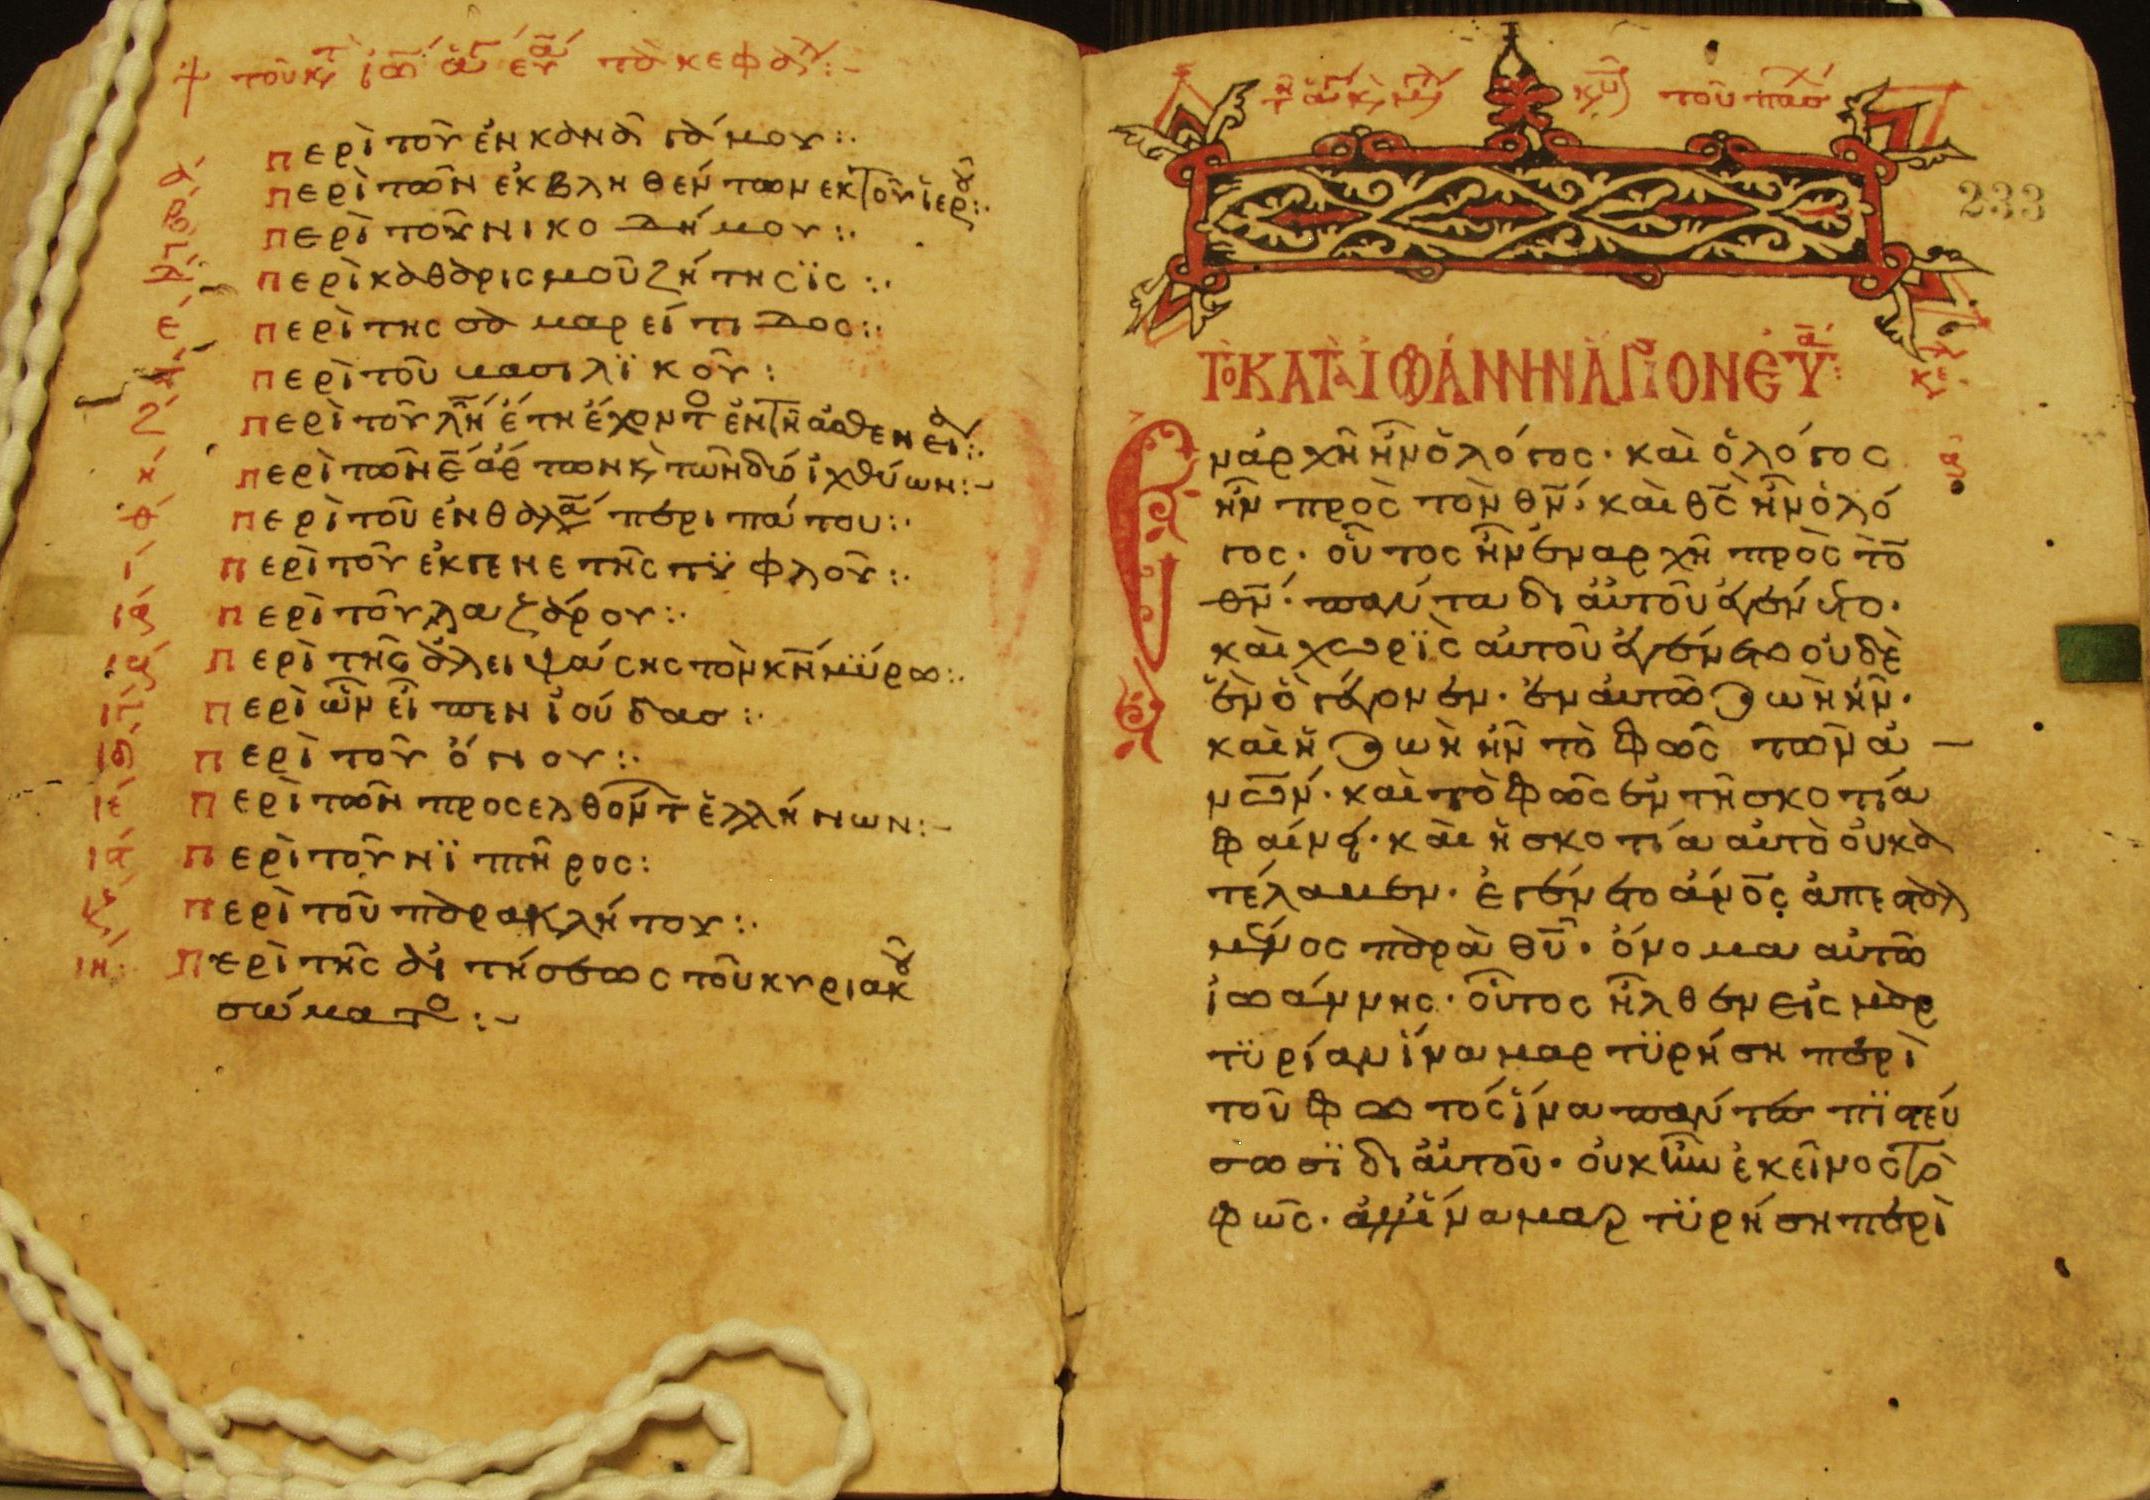 περὶ τοῦ ἐν κανᾶ γάμου :·
περὶ τῶν ἐκβληθέντων ἐκ τοῦ ἱερ
περὶ τοῦ νικοδήμου :·
περὶ καθαρισμοῦ ζήτησϊς :·
περὶ τῆς σαμαρείτιδος :·
περὶ τοῦ βασιλϊκοῦ :
περὶ τοῦ λη ἔτη ἔχοντ ἐν τῆ ἀσθενεί
περὶ τῶν ε ἄρτων κ τῶν δύο ἰχθύων :-
περὶ τοῦ ἐν θαλα περιπάτου :·
περὶ τοῦ ἐκ γενετῆς τϋφλοῦ :·
περὶ τοῦ λαζάρου :·
περὶ τῆς ἀλειψάσης τὸν κν μϋρω :·
περὶ ὧν εἶπεν ἰούδας :·
περὶ τοῦ ὄνου :·
περὶ τῶν προσελθόντ ἑλλήνων :-
περὶ τοῦ νϊπτῆρος :
περὶ τοῦ παρακλήτου :·
περὶ τῆς αἰτήσεως τοῦ κυριακ
σώματο :-
233
ΤῸ ΚΑΤᾺ ἸΩΆΝΝΗΝ ἍΓΙΟΝ ΕΥ
Ἐν ἀρχῆ ἦν ὁ λόγος· καὶ ὁ λόγος
ἦν πρὸς τὸν θν· καὶ θς ἦν ὁ λό
γος· οὗτος ἦν ἐν ἀρχῆ πρὸς τὸ
θν· πάντα δι αὐτοῦ ἐγένετο·
καὶ χωρϊς αὐτοῦ ἐγένετο οὐδὲ
ἓν ὃ γέγονεν· ἐν αὐτῶ ζωὴ ἦν·
καὶ ἡ ζωὴ ἦν τὸ φῶς τῶν α
νων· καὶ τὸ φῶς ἐν τῆ σκοτία
φαίνει· καὶ ἡ σκοτία αὐτὸ οὐ κα
τέλαβεν· ἐγένετο ανος ἀπεσταλ
μένος παρὰ θυ· ὄνομα αὐτῶ
ἰωάννης· οὗτος ἦλθεν εἰς μαρ
τϋρίαν ἵνα μαρτϋρήση περὶ
τοῦ φωτός ἵνα πάντες πϊστεύ
σωσϊ δι αὐτοῦ· οὐκ ἦν ἐκεῖνος τὸ
φῶς· ἀλλ ἵνα μαρτϋρήση περὶ